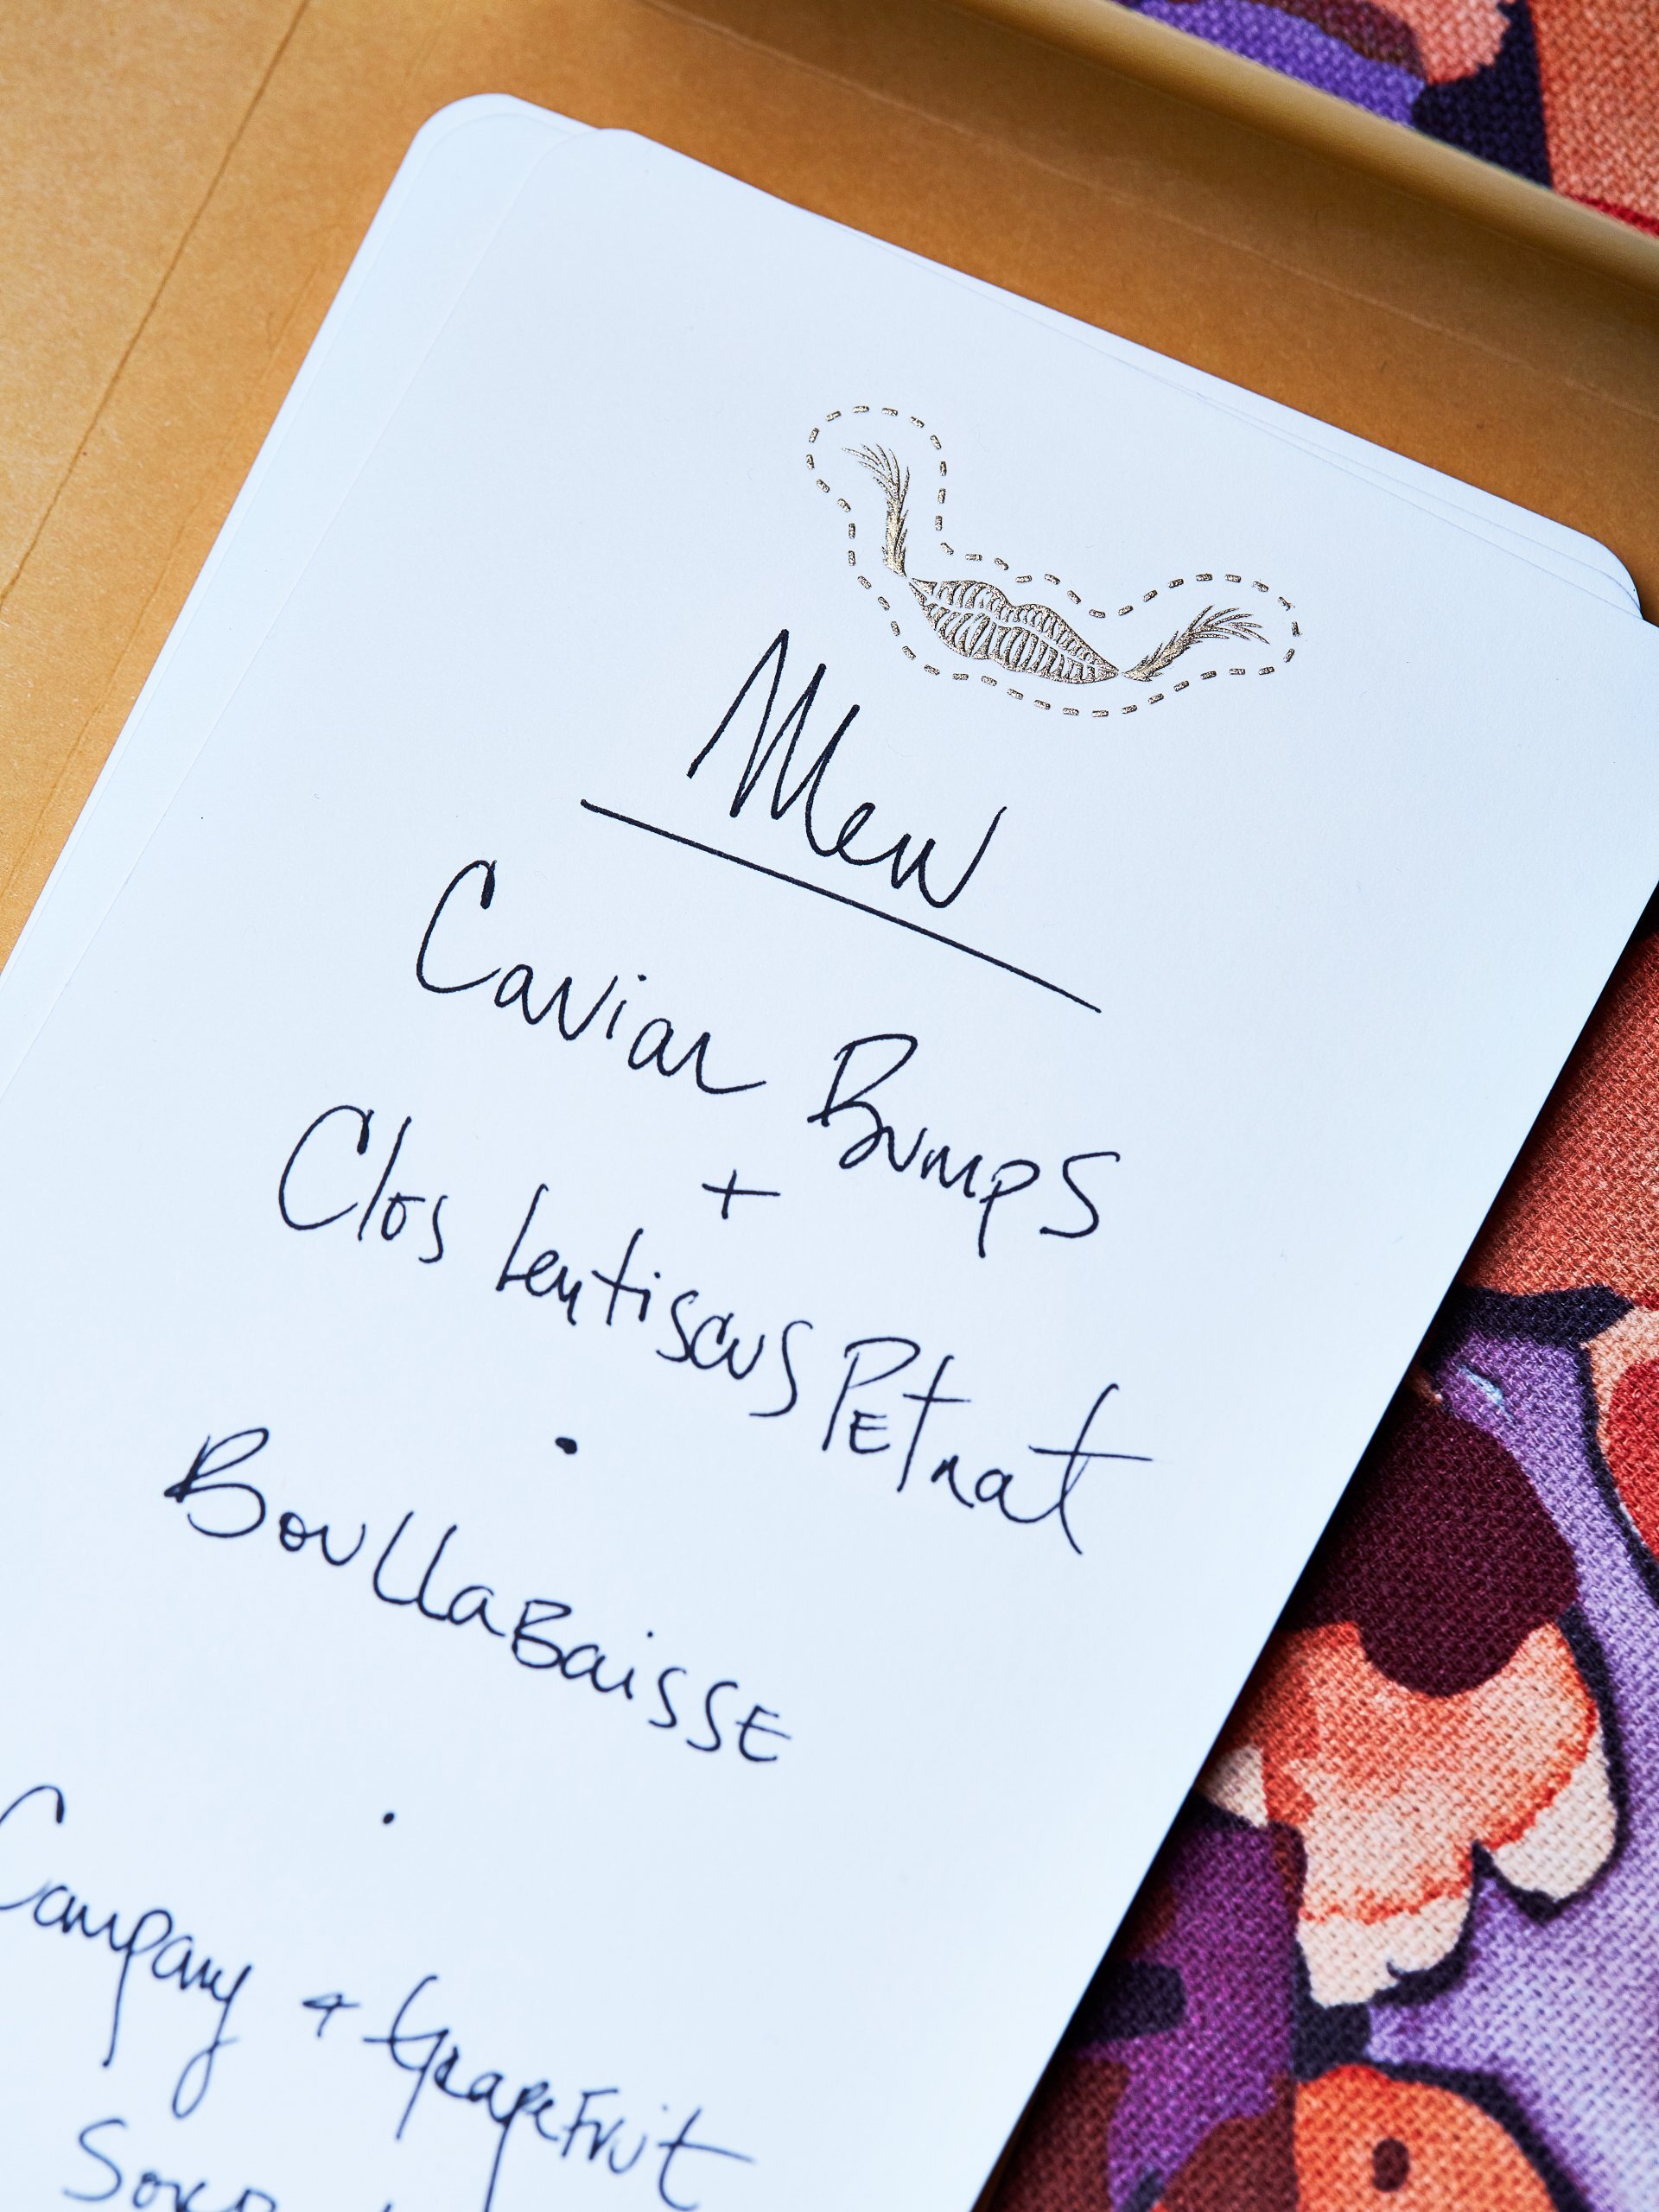 Menu
Caviar Bumps
+
Clos Lentiscus PETnat
•
BoullaBaisse
•
Campany + GrapeFruit